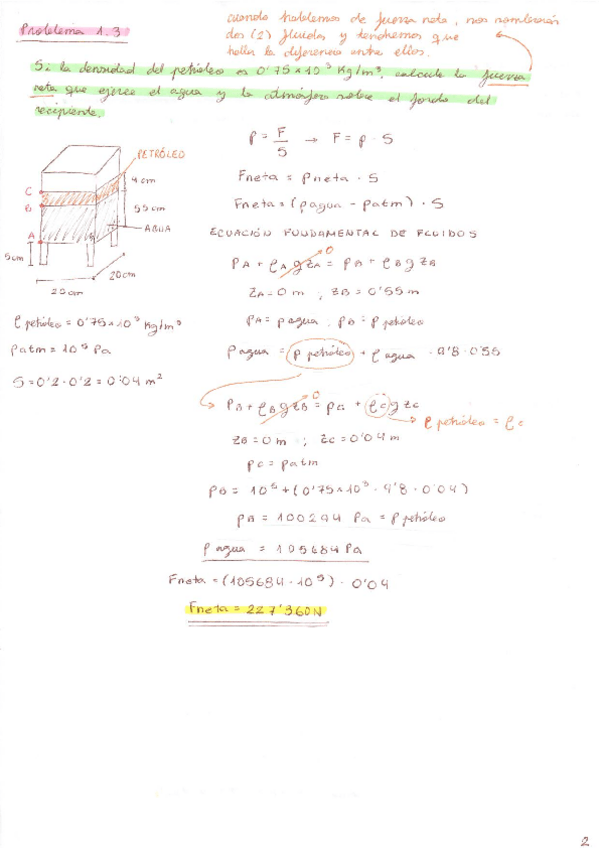 Problema 1.3
cuando hablemos de fuerza neta, nos nombrarán
dos (2) fluidos y tendremos que
hallar la diferencia entre ellos.
Si la densidad del petróleo es 0'75×10³ Kg/m³, calcule la fuerza
neta que ejerce el agua y la atmósfera sobre el fondo del
recipiente.
PETRÓLEO
4cm
C
B
55cm
A
AGUA
5cm
20cm
20cm
ρ petróleo = 0'75×10³ Kg/m³
Patm = 10⁵ Pa
S = 0'2 · 0'2 = 0'04 m²
P = F/S → F = P · S
Fneta = Pneta · S
Fneta = (Pagua - Patm) · S
ECUACIÓN FUNDAMENTAL DE FLUIDOS
PA + ρA g zA = PB + ρB g zB
0
zA = 0 m ; zB = 0'55 m
PA = Pagua ; PB = P petróleo
Pagua = P petróleo + ρ agua · 9'8 · 0'55
PB + ρB g zB = PC + ρC g zC
0
ρ petróleo = ρC
zB = 0 m ; zC = 0'04 m
PC = Patm
PB = 10⁵ + (0'75×10³ · 9'8 · 0'04)
PB = 100294 Pa = P petróleo
P agua = 105684 Pa
Fneta = (105684 - 10⁵) · 0'04
Fneta = 227'360N
2